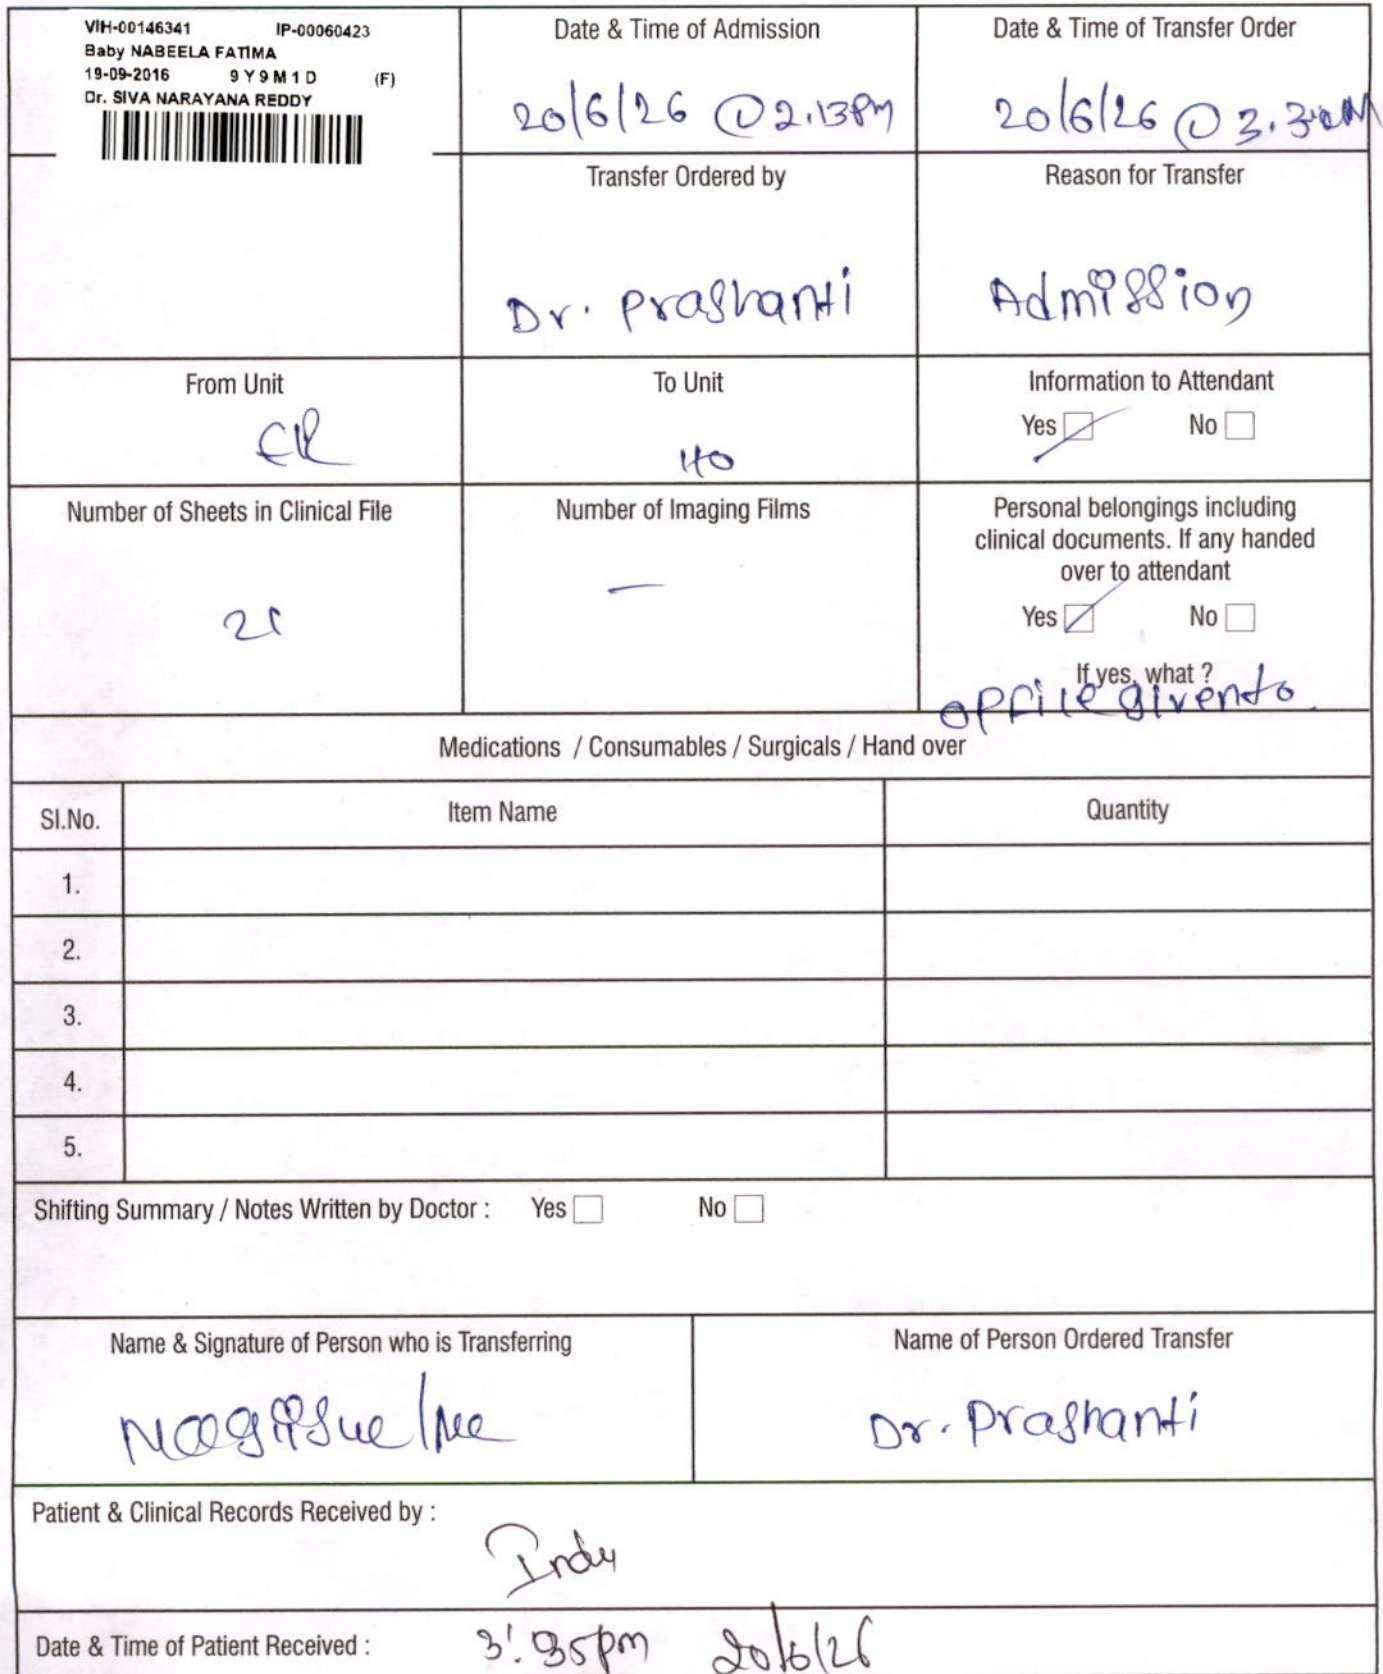 VIH-00146341 IP-00060423
Baby NABEELA FATIMA
19-09-2016 9 Y 9 M 1 D (F)
Dr. SIVA NARAYANA REDDY
Date & Time of Admission
20/6/26 @ 2.13PM
Date & Time of Transfer Order
20/6/26 @
Transfer Ordered by
Dr. Prashanti
Reason for Transfer
Admission
From Unit
ER
To Unit
Information to Attendant
Yes No
Number of Sheets in Clinical File
21
Number of Imaging Films
—
Personal belongings including
clinical documents. If any handed
over to attendant
Yes No
If yes, what ?
OP File given to.
Medications / Consumables / Surgicals / Hand over
Sl.No. Item Name Quantity
1.
2.
3.
4.
5.
Shifting Summary / Notes Written by Doctor : Yes No
Name & Signature of Person who is Transferring
Name of Person Ordered Transfer
Dr. Prashanti
Patient & Clinical Records Received by :
Indu
Date & Time of Patient Received : 3:35pm 20/6/26